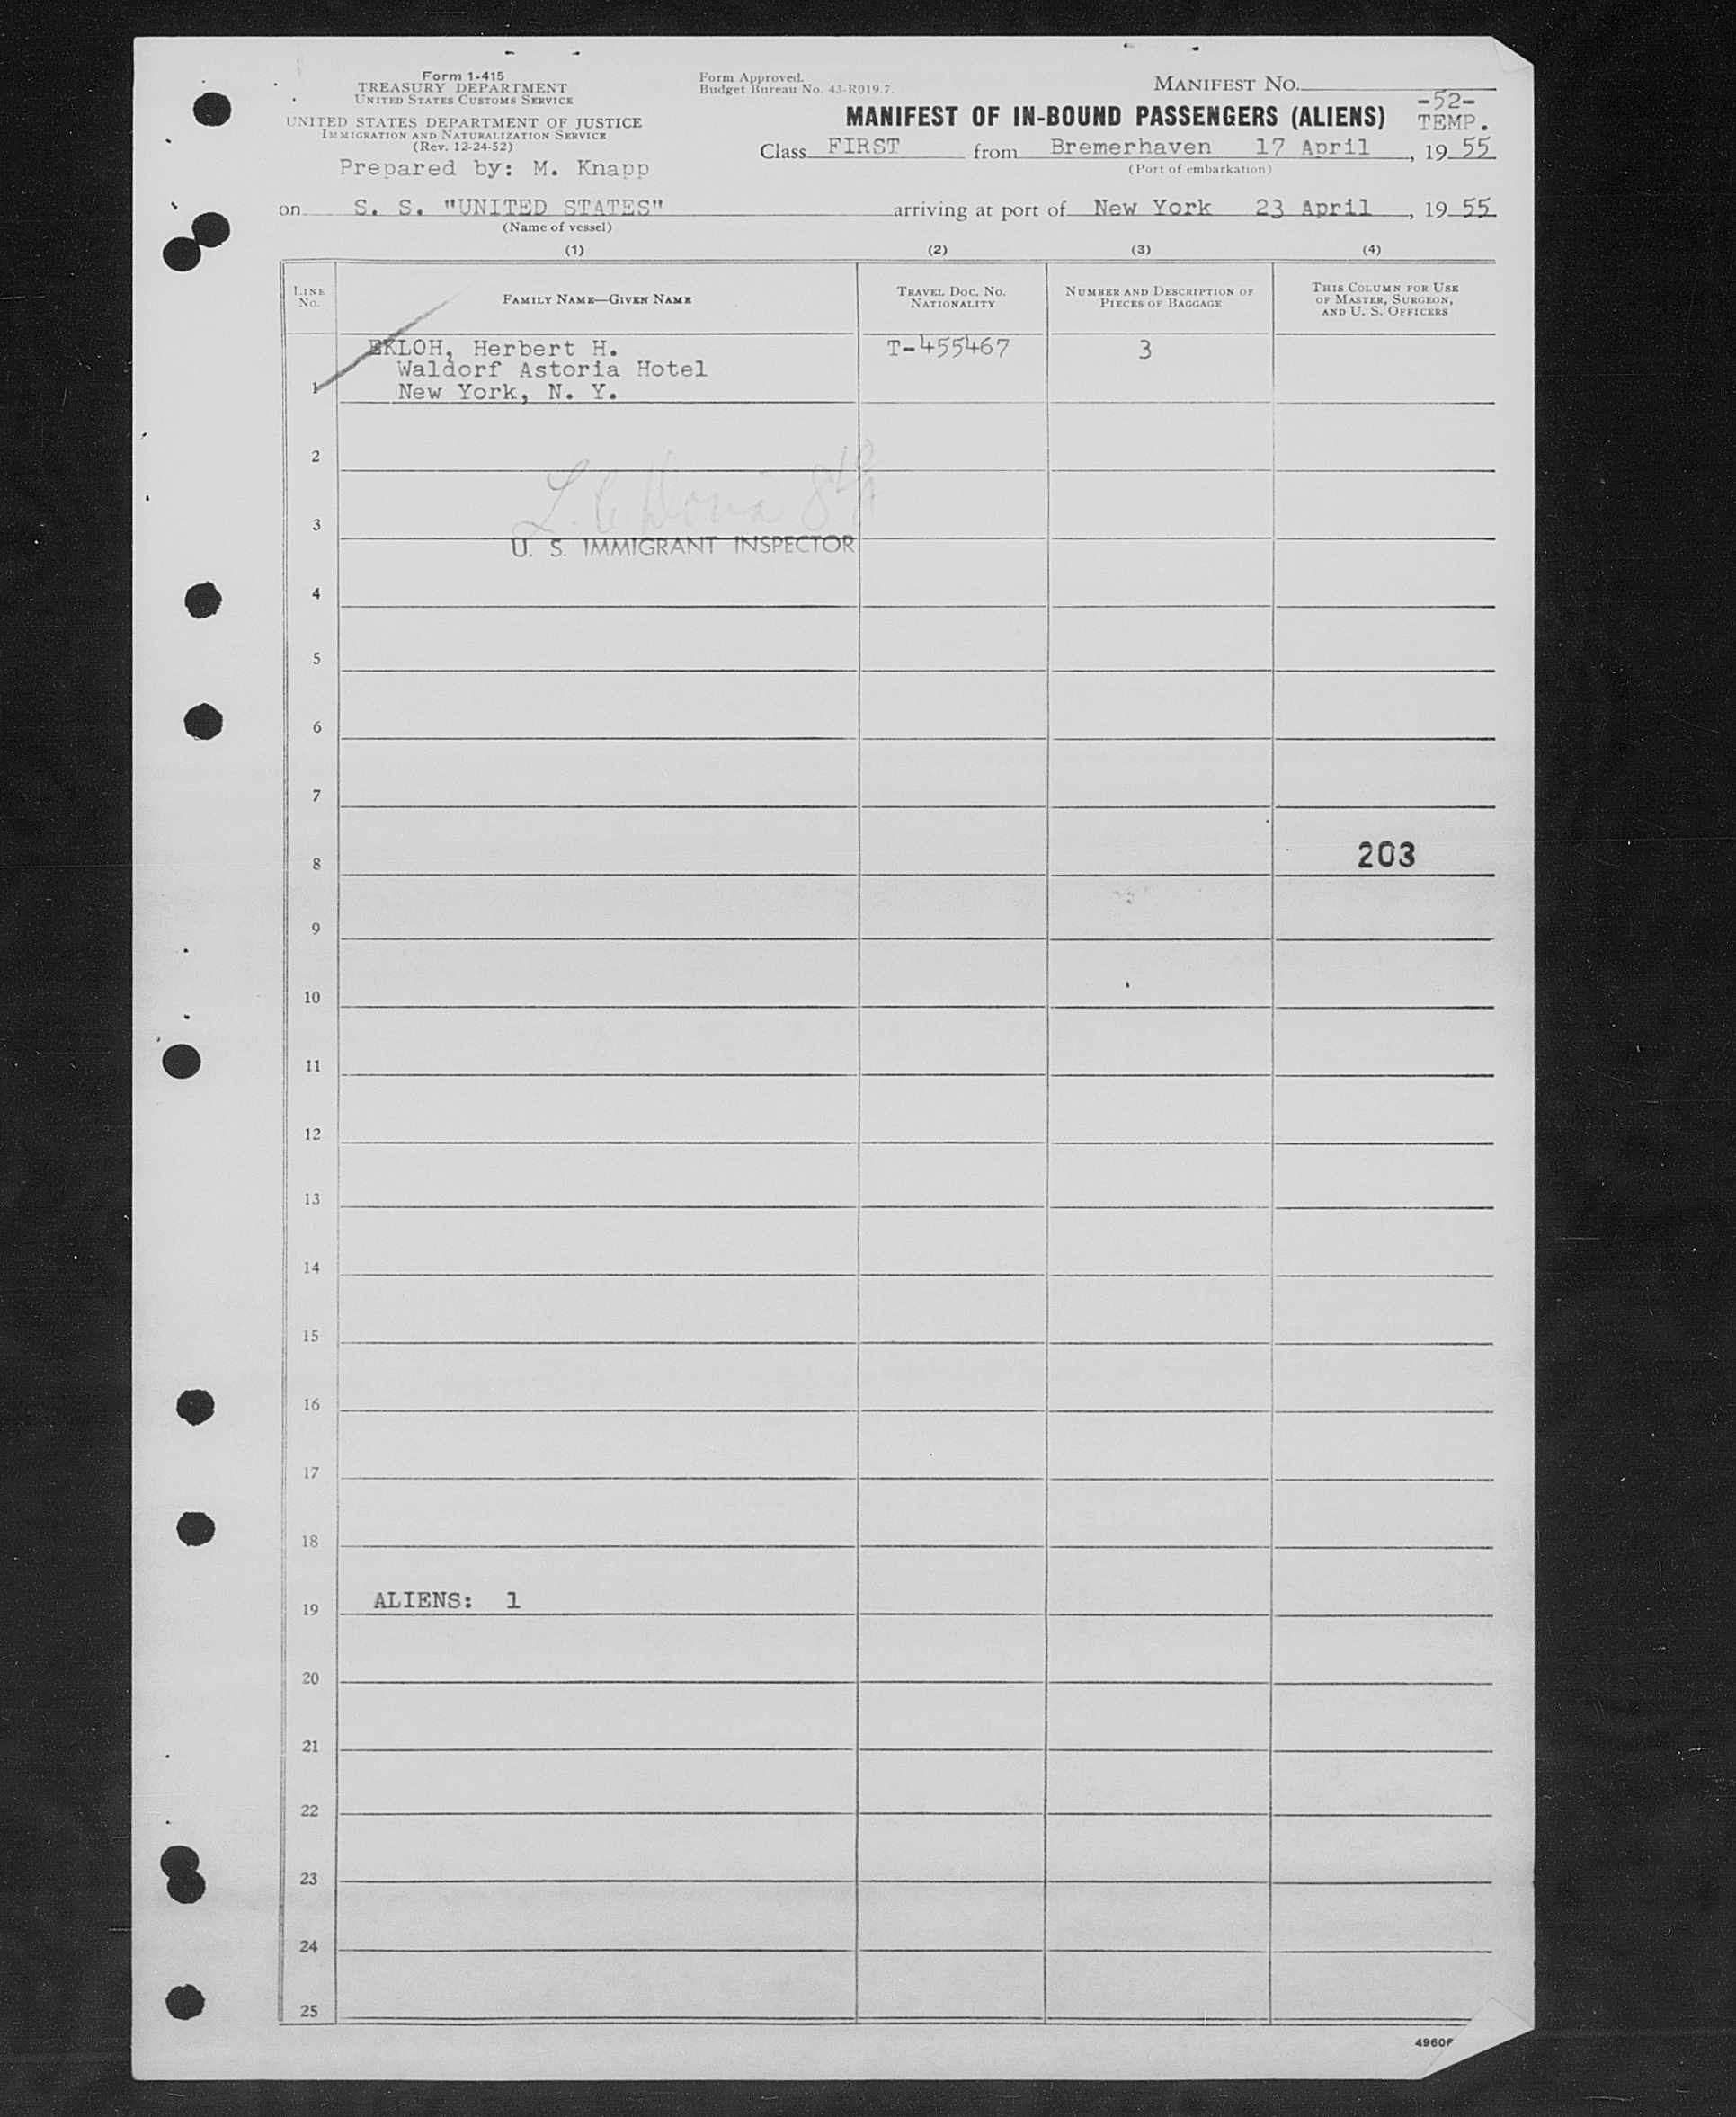 Form 1-415
TREASURY DEPARTMENT
UNITED STATES CUSTOMS SERVICE
UNITED STATES DEPARTMENT OF JUSTICE
IMMIGRATION AND NATURALIZATION SERVICE
(Rev. 12-24-52)
Prepared by: M. Knapp
Form Approved.
Budget Bureau No. 43-R019.7.
MANIFEST NO.
-52-
MANIFEST OF IN-BOUND PASSENGERS (ALIENS) TEMP.
Class FIRST from Bremerhaven 17 April, 19 55
(Port of embarkation)
on S. S. "UNITED STATES" arriving at port of New York 23 April, 19 55
(Name of vessel)
(1) (2) (3) (4)
LINE No. FAMILY NAME—GIVEN NAME TRAVEL DOC. NO. NATIONALITY NUMBER AND DESCRIPTION OF PIECES OF BAGGAGE THIS COLUMN FOR USE OF MASTER, SURGEON, AND U. S. OFFICERS
EKLOH, Herbert H. T-455467 3
Waldorf Astoria Hotel
1 New York, N. Y.
2
3
U. S. IMMIGRANT INSPECTOR
4
5
6
7
8 203
9
10
11
12
13
14
15
16
17
18
19 ALIENS: 1
20
21
22
23
24
25